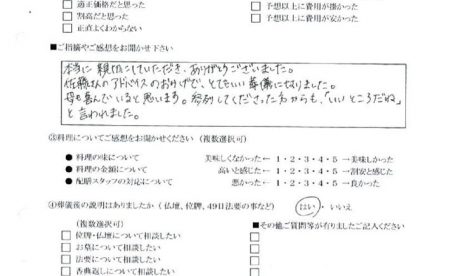 □ 適正価格だと思った □ 予想以上に費用が掛かった
□ 割高だと思った □ 予想以上に費用が安かった
□ 正直よくわからない
■ご指摘やご感想をお聞かせ下さい
本当に親切にしていただき、ありがとうございました。
佐藤さんのアドバイスのおかげで、とてもいい葬儀になりました。
母も喜んでいると思います。参列してくださった方からも、「いいところだね」
と言われました。
③料理についてご感想をお聞かせください(複数選択可)
● 料理の味について 美味しくなかった←1・2・3・4・5→美味しかった
● 料理の金額について 高いと感じた←1・2・3・4・5→割安と感じた
● 配膳スタッフの対応について 悪かった←1・2・3・4・5→良かった
④葬儀後の説明はありましたか(仏壇、位牌、49日法要の事など) はい・いいえ
(複数選択可) ■その他ご質問等が有りましたご記入ください
□ 位牌・仏壇について相談したい □
□ お墓について相談したい □
□ 法要について相談したい □
□ 香典返しについて相談したい □